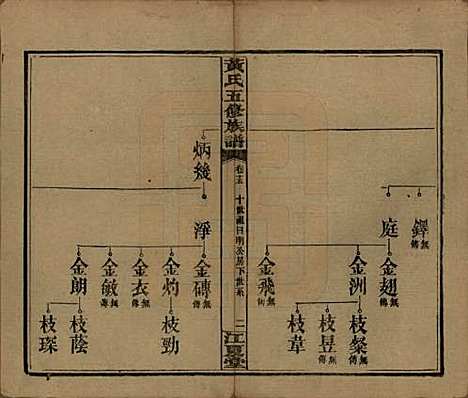 鐸 無傳
庭
金翅 無傳
金洲
金飛 無傳
枝粲 無傳
枝昱 無傳
枝韋
黃氏五修族譜
卷十五
十世祖日明公房下世系
二
江夏堂
炳幾
淨
金磚 無傳
金灼
金衣 無傳
金敏 無傳
金朗
枝勁
枝蔭
枝琛